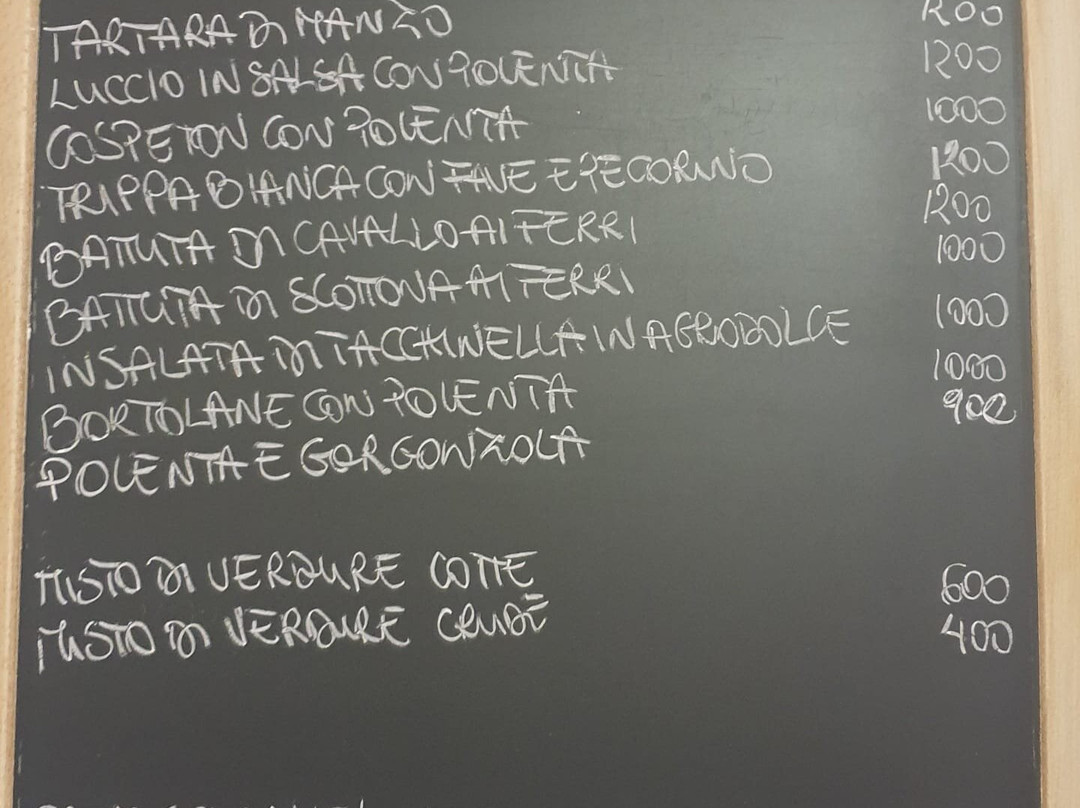 TARTARA DI MANZO 1200
LUCCIO IN SALSA CON POLENTA 1200
COSPETON CON POLENTA 1000
TRIPPA BIANCA CON FAVE E PECORINO 1200
BATTUTA DI CAVALLO AI FERRI 1200
BATTUTA DI SCOTTONA AI FERRI 1000
INSALATA DI TACCHINELLA IN AGRODOLCE 1000
BORTOLANE CON POLENTA 1000
POLENTA E GORGONZOLA 900
MISTO DI VERDURE COTTE 600
MISTO DI VERDURE CRUDE 400